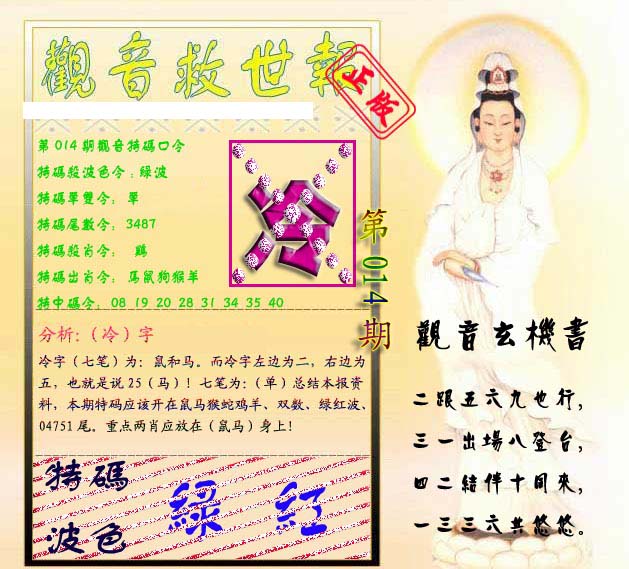 觀音救世報
正版
第014期觀音特碼口令
特碼殺波色令:綠波
特碼單雙令: 單
特碼尾數令: 3487
特碼殺肖令: 鷄
特碼出肖令: 馬鼠狗猴羊
特中碼令: 08 19 20 28 31 34 35 40
冷
第014期
分析:（冷）字
冷字（七笔）为：鼠和马。而冷字左边为二，右边为
五，也就是说 25（马）！七笔为：（单）总结本报资
料，本期特码应该开在鼠马猴蛇鸡羊、双数、绿红波、
04751 尾。重点两肖应放在（鼠马）身上！
特碼
波色
綠 紅
觀音玄機書
二跟五六九也行，
三一出場八登台，
四二結伴十同來，
一三三六共悠悠。